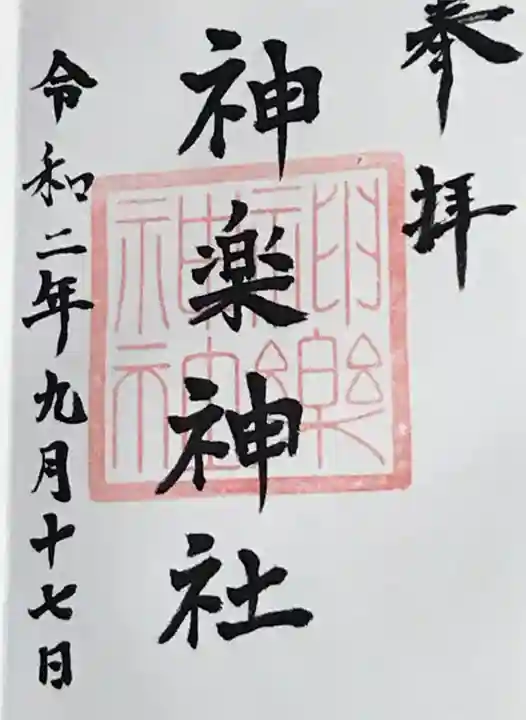 奉拝
神楽神社
神楽
神社
令和二年九月十七日